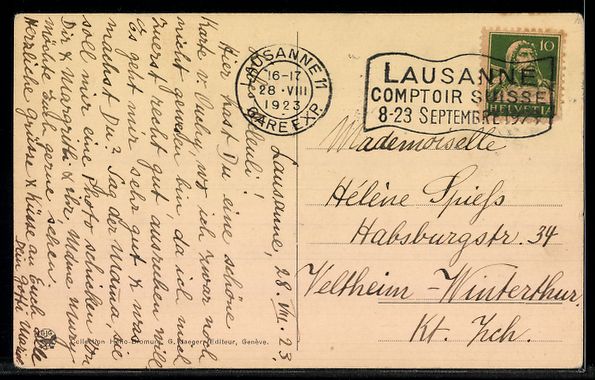 LAUSANNE 11
16-17
28.VIII
1923
GARE EXP.
LAUSANNE
COMPTOIR SUISSE
8-23 SEPTEMBRE
10
HELVETIA
Mademoiselle
Hélène Spieſs
Habsburgstr. 34
Veltheim - Winterthur.
Kt. Zch.
Lausanne, 28. VIII. 23.
Hier hast Du eine schöne
Karte v. wo ich zwar noch
nicht gewesen bin da ich mich
zuerst recht gut ausruhen will,
Es geht mir sehr gut & was
machst Du? Sag der Mama, sie
soll mir eine Photo schicken von
Dir & Margrith & ihr. Meine
möchte Euch gerne sehen.
Herzliche Grüsse & Küsse an Euch Alle
Dein
Editeur, Genève.